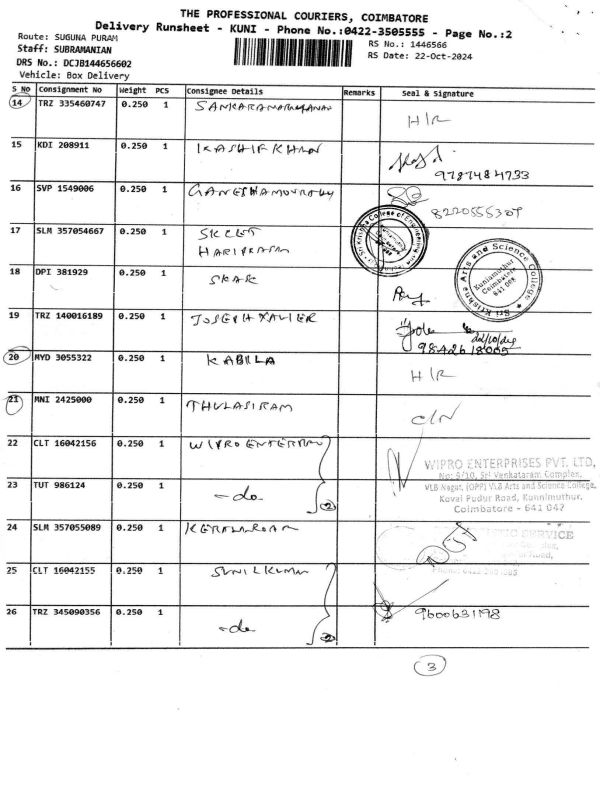 THE PROFESSIONAL COURIERS, COIMBATORE
Delivery Runsheet - KUNI - Phone No.:0422-3505555 - Page No.:2
Route: SUGUNA PURAM
RS No.: 1446566
Staff: SUBRAMANIAN
RS Date: 22-Oct-2024
DRS No.: DCJB144656602
Vehicle: Box Delivery
S No Consignment No Weight PCS Consignee Details Remarks Seal & Signature
14 TRZ 335460747 0.250 1 SANKARANARAYANAN H/R
15 KDI 208911 0.250 1 KASHIF KHAN
9787484733
16 SVP 1549006 0.250 1 GANESHAMOURTHY
8220555307
17 SLM 357054667 0.250 1 SKCET
HARIPRASM
Sri Krishna College of Engineering and Technology
18 DPI 381929 0.250 1 SKAR
Sri Krishna Arts and Science College
Kuniamuthur
Coimbatore
641 008
19 TRZ 140016189 0.250 1 JOSEPH XAVIER
9842618005
20 MYD 3055322 0.250 1 KABILA H/R
21 MNI 2425000 0.250 1 THULASIRAM C/N
22 CLT 16042156 0.250 1 WIPRO ENTERPRI
WIPRO ENTERPRISES PVT. LTD,
No: 9/10, Sri Venkataram Complex,
VLB Nagar, (OPP) VLB Arts and Science College,
Kovai Pudur Road, Kunnimuthur,
Coimbatore - 641 042
23 TUT 986124 0.250 1 -do- 2
24 SLM 357055089 0.250 1
SERVICE
25 CLT 16042155 0.250 1 SUNILKUMAR
26 TRZ 345090356 0.250 1 -do- 2 9600631198
3